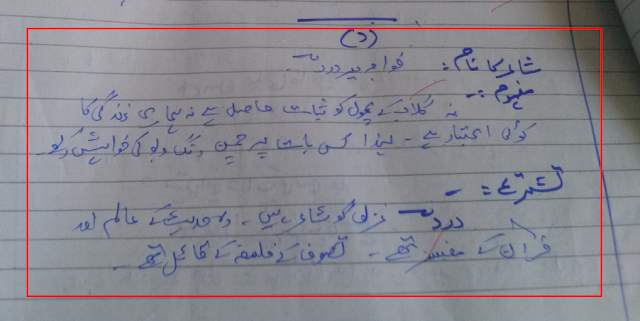 (د)
شاعر کا نام: خواجہ میر درد
مفہوم:-
نہ گلاب کے پھول کو ثبات حاصل ہے نہ ہماری زندگی کا
کوئی اعتبار ہے - لہذا کس بات پر چمن رنگ و بو کی خواہش کرے
تشریح: -
درد غزل گو شاعر ہیں - وہ حدیث کے عالم اور
قرآن کے مفسر تھے - تصوف کے فلسفہ کے قائل تھے -